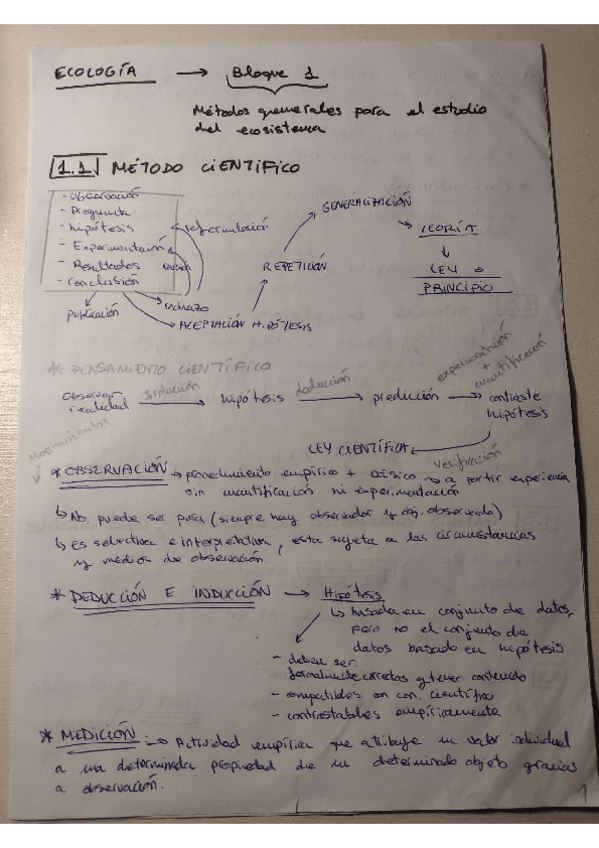 ECOLOGÍA → Bloque 1
Métodos generales para el estudio
del ecosistema
1.1 MÉTODO CIENTÍFICO
- Observación
- Pregunta
- hipótesis
- Experimentación
- Resultados
- conclusión
reformulación
publicación
rechazo
→ ACEPTACIÓN HIPÓTESIS
REPETICIÓN
GENERALIZACIÓN
TEORÍA
↓
LEY o
PRINCIPIO
* PENSAMIENTO CIENTÍFICO
Observar realidad → inducción → hipótesis → deducción → predicción → contraste hipótesis
experimentación
+
cuantificación
LEY CIENTÍFICA ← verificación
Herramientas
* OBSERVACIÓN → procedimiento empírico + básico → a partir experiencia
sin cuantificación ni experimentación
↳ No puede ser pura (siempre hay observador y obj. observado)
↳ es selectiva e interpretativa, esta sujeta a las circunstancias
y medios de observación.
* DEDUCCIÓN E INDUCCIÓN → Hipótesis
↳ basada en conjunto de datos,
pero no el conjunto de
datos basado en hipótesis
- deben ser
formalmente correctas y tener contenido
- compatibles con con. científico
- contrastables empíricamente
* MEDICIÓN → Actividad empírica que atribuye un valor individual
a una determinada propiedad de un determinado objeto gracias
a observación.
1